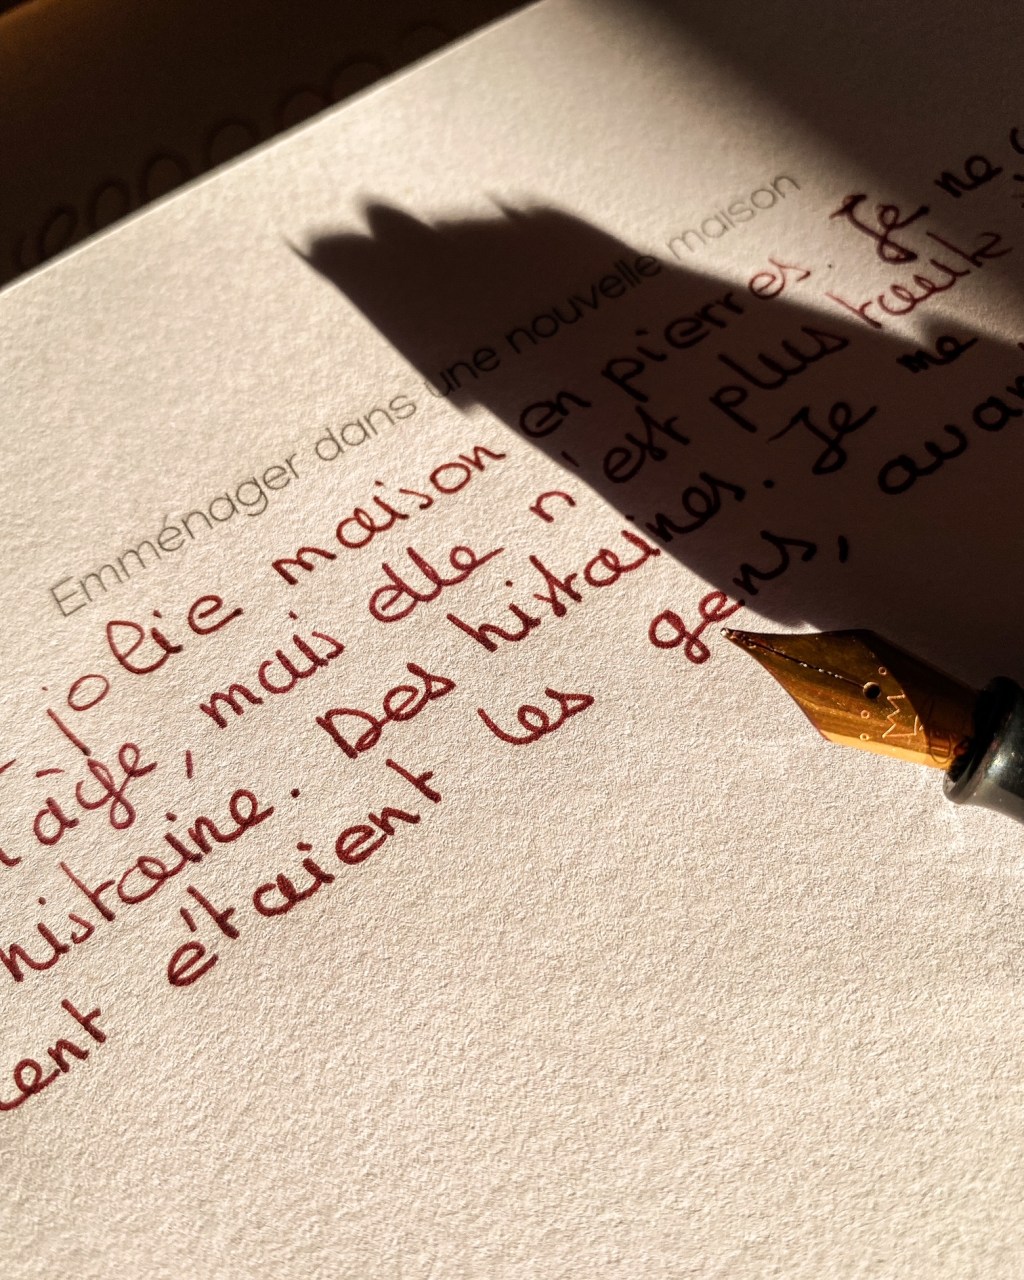 Emménager dans une nouvelle maison
jolie maison en pierres. Je ne
âge, mais elle n'est plus toute
histoire. Des histoires. Je me
ent étaient les gens, avan